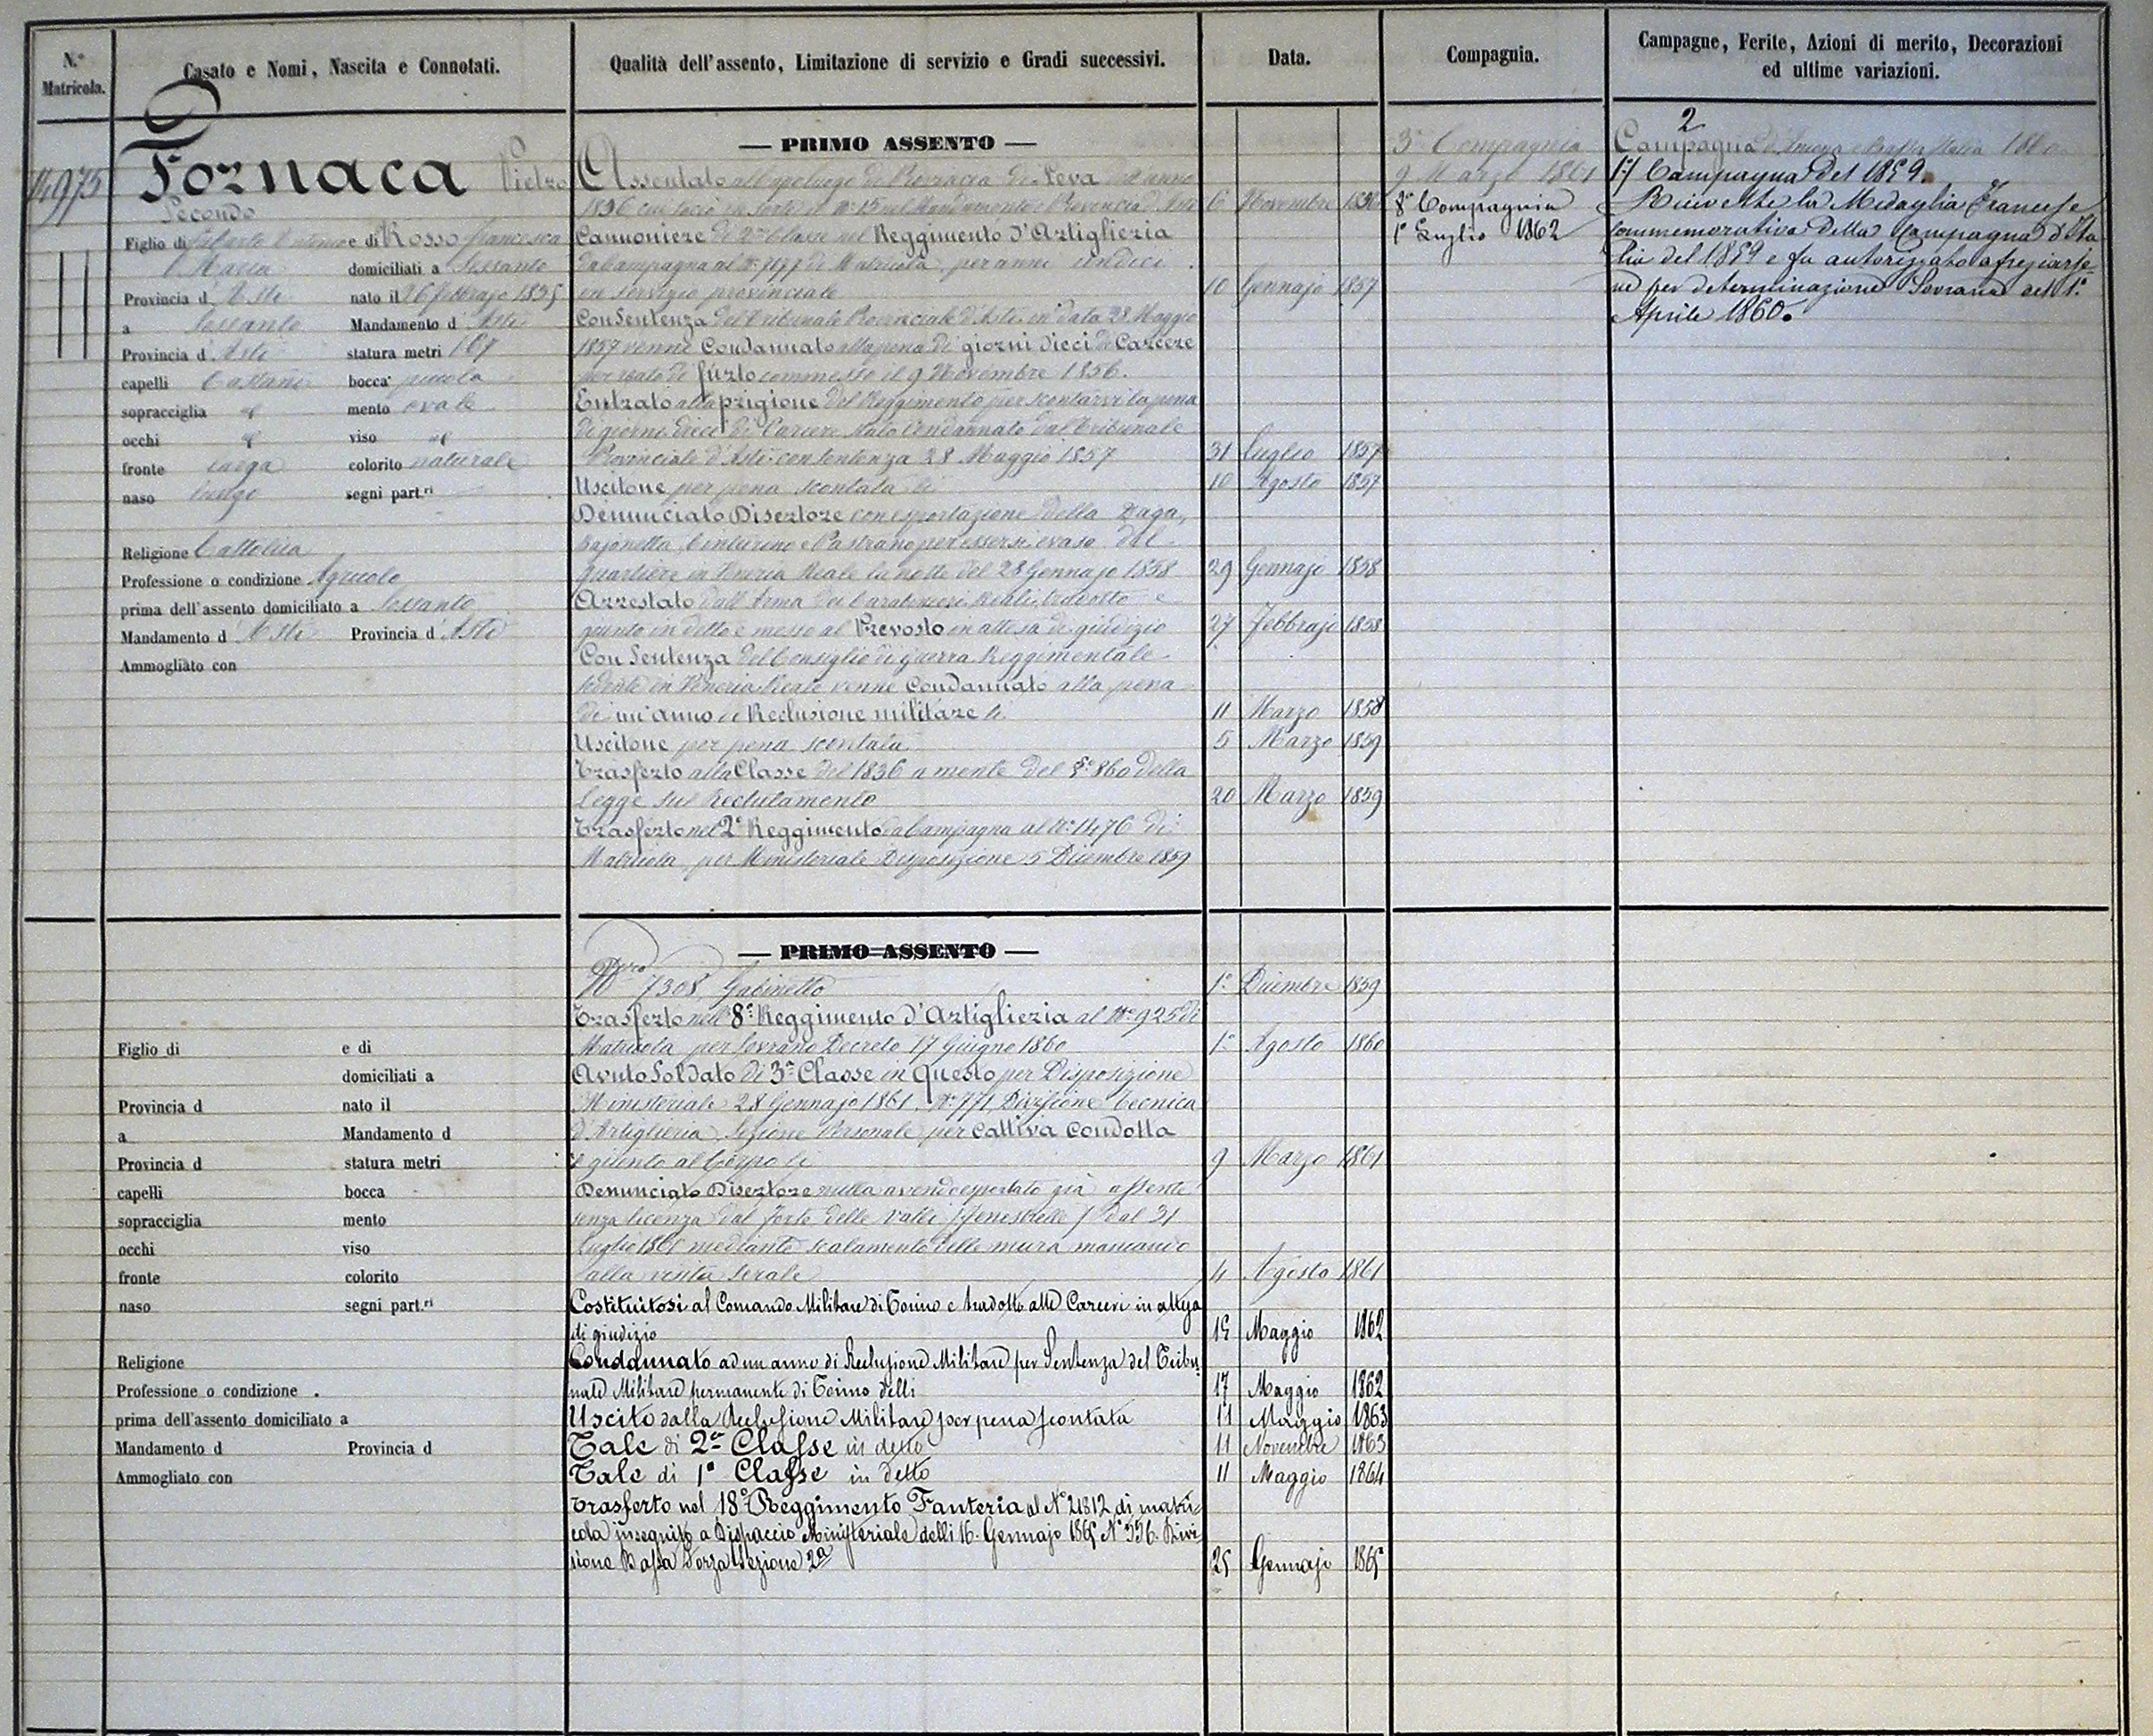 N.° Matricola.
Casato e Nomi, Nascita e Connotati.
Qualità dell'assento, Limitazione di servizio e Gradi successivi.
Data.
Compagnia.
Campagne, Ferite, Azioni di merito, Decorazioni
ed ultime variazioni.
14975
Fornaca Pietro
Secondo
Figlio di e di Rosso Francesca
Maria domiciliati a Sessanto
Provincia d'Asti nato il 26 febbrajo 1835
a Sessanto Mandamento d'Asti
Provincia d'Asti statura metri 1 67
capelli Castani bocca piccola
sopracciglia id mento ovale
occhi id viso id
fronte larga colorito naturale
naso lungo segni part.ri
Religione Cattolica
Professione o condizione Agricola
prima dell'assento domiciliato a Sessanto
Mandamento d'Asti Provincia d'Asti
Ammogliato con
— PRIMO ASSENTO —
Assentato al capoluogo di Provincia di Leva dell'anno
1836 cui toccò in sorte il N.° 15 nel Mandamento e Provincia d'Asti 6 Novembre 1856
Cannoniere di 2.a Classe nel Reggimento d'Artiglieria
da Campagna al N.° 7177 di Matricola, per anni undici
in servizio provinciale 10 Gennajo 1857
Con Sentenza del Tribunale Provinciale d'Asti in data 28 Maggio
1857 venne Condannato alla pena di giorni dieci di Carcere
per reato di furto commesso il 9 Novembre 1856.
Entrato alla prigione del Reggimento per scontarvi la pena
di giorni dieci di Carcere stato Condannato dal Tribunale
Provinciale d'Asti con sentenza 28 Maggio 1857 31 Luglio 1857
Uscitone per pena scontata li 10 Agosto 1857
Denunciato Disertore con esportazione della Daga,
Bajonetta, Centurino e Pastrano per essersi evaso dal
quartiere in Veneria Reale la notte del 28 Gennajo 1858 29 Gennajo 1858
Arrestato dall'Arma dei Carabinieri Reali, tradotto e
giunto in detto e messo al Prevosto in attesa di giudizio 27 Febbrajo 1858
Con Sentenza del Consiglio di Guerra Reggimentale
sedente in Veneria Reale venne Condannato alla pena
di un'anno di Reclusione militare li 11 Marzo 1858
Uscitone per pena scontata 5 Marzo 1859
Trasferto alla Classe del 1836 a mente del §.° 860 della
Legge sul Reclutamento 20 Marzo 1859
Trasferto nel 2.° Reggimento da Campagna al N.° 1476 di
Matricola per Ministeriale Disposizione 5 Dicembre 1859
3.a Compagnia
9 Marzo 1861
8.a Compagnia
1.° Luglio 1862
2
Campagna d'Ancona e Bassa Italia 1860
1.a Campagna del 1859.
Ricevette la Medaglia Francese
commemorativa della Campagna d'Ita
lia del 1859 e fu autorizzato a fregiarse
ne per determinazione Sovrana dell 1.°
Aprile 1860.
— PRIMO ASSENTO —
N.ro 7308, Gabinetto 1.° Dicembre 1859
Trasferto nell'8.° Reggimento d'Artiglieria al N.° 925 di
Matricola per Sovrano Decreto 17 Giugno 1860 1.° Agosto 1860
Avuto Soldato di 3.a Classe in questo per Disposizione
Ministeriale 28 Gennajo 1861, N.° 771, Divisione Tecnica
d'Artiglieria, Sezione Personale per cattiva condotta
e giunto al Corpo li 9 Marzo 1861
Denunciato Disertore nulla avendo esportato già assente
senza licenza dal Forte delle Valli (Fenestrelle) dal 31
Luglio 1861 mediante scalamento delle mura mancando
alla visita serale 4 Agosto 1861
Costituitosi al Comando Militare di Torino e tradotto alle Carceri in attesa
di giudizio 15 Maggio 1862
Condannato ad un anno di Reclusione Militare per Sentenza del Tribu
nale Militare permanente di Torino delli 17 Maggio 1862
Uscito dalla Reclusione Militare per pena scontata 11 Maggio 1863
Tale di 2.a Classe in detto 11 Novembre 1863
Tale di 1.a Classe in detto 11 Maggio 1864
Trasferto nel 18.° Reggimento Fanteria al N° 21812 di matri
cola in seguito a Dispaccio Ministeriale delli 16 Gennajo 1865 N° 356. Divi
sione Bassa Forza Sezione 2a 25 Gennajo 1865
Figlio di e di
domiciliati a
Provincia d nato il
a Mandamento d
Provincia d statura metri
capelli bocca
sopracciglia mento
occhi viso
fronte colorito
naso segni part.ri
Religione
Professione o condizione .
prima dell'assento domiciliato a
Mandamento d Provincia d
Ammogliato con